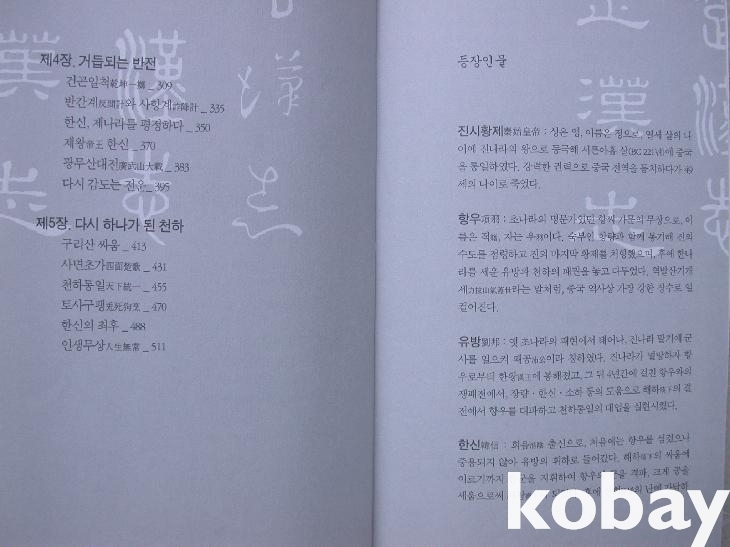 제4장. 거듭되는 반전
건곤일척乾坤一擲 _ 309
반간계反間計와 사항계詐降計 _ 335
한신, 제나라를 평정하다 _ 350
제왕帝王 한신 _ 370
광무산대진廣武山大戰 _ 383
다시 감도는 전운 _ 395
제5장. 다시 하나가 된 천하
구리산 싸움 _ 413
사면초가四面楚歌 _ 431
천하통일天下統一 _ 455
토사구팽兎死狗烹 _ 470
한신의 최후 _ 488
인생무상人生無常 _ 511
등장인물
진시황제秦始皇帝 : 성은 영, 이름은 정으로, 열세 살의 나
이에 진나라의 왕으로 등극해 서른아홉 살(BC 221년)에 중국
을 통일하였다. 강력한 권력으로 중국 전역을 통치하다가 49
세의 나이로 죽었다.
항우項羽 : 초나라의 명문가였던 항씨 가문의 무장으로, 이
름은 적籍, 자는 우羽이다. 숙부인 항량과 함께 봉기해 진의
수도를 점령하고 진의 마지막 황제를 처형했으며, 후에 한나
라를 세운 유방과 천하의 패권을 놓고 다투었다. 역발산기개
세力拔山氣蓋世라는 말처럼, 중국 역사상 가장 강한 장수로 일
컬어진다.
유방劉邦 : 옛 초나라의 패현에서 태어나, 진나라 말기에 군
사를 일으켜 패공沛公이라 칭하였다. 진나라가 멸망하자 항
우로부터 한왕漢王에 봉해졌고, 그 뒤 4년간에 걸친 항우와의
쟁패전에서, 장량 · 한신 · 소하 등의 도움으로 해하垓下의 결
전에서 항우를 대파하고 천하통일의 대업을 실현시켰다.
한신韓信 : 회음淮陰 출신으로, 처음에는 항우를 섬겼으나
중용되지 않아 유방의 휘하로 들어갔다. 해하垓下의 싸움에
이르기까지 군을 지휘하여 항우 을 격파, 크게 공을
세움으로써
의 난에 가담하
kobay